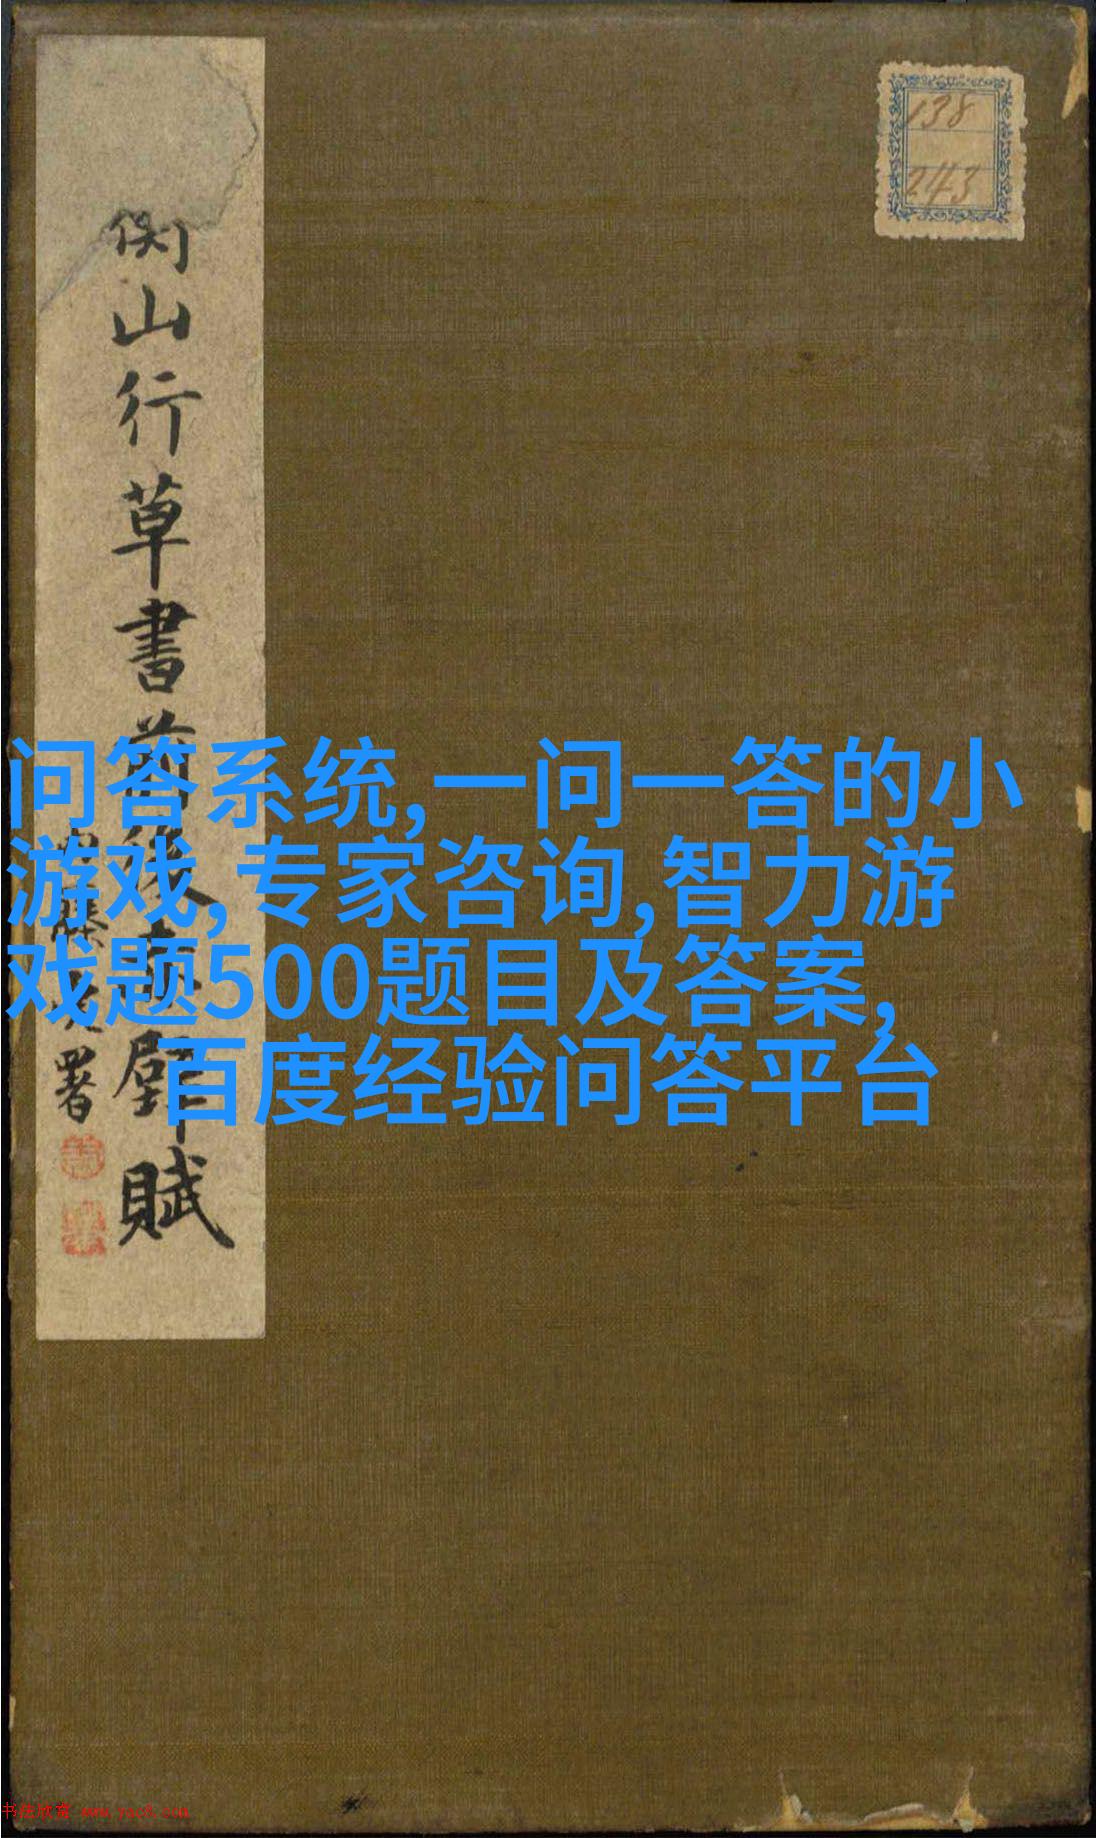 138
243
山行草書前後赤壁賦
署
问答系统,一问一答的小
游戏,专家咨询,智力游
戏题500题目及答案,
百度经验问答平台
书法欣赏 www.yac8.com